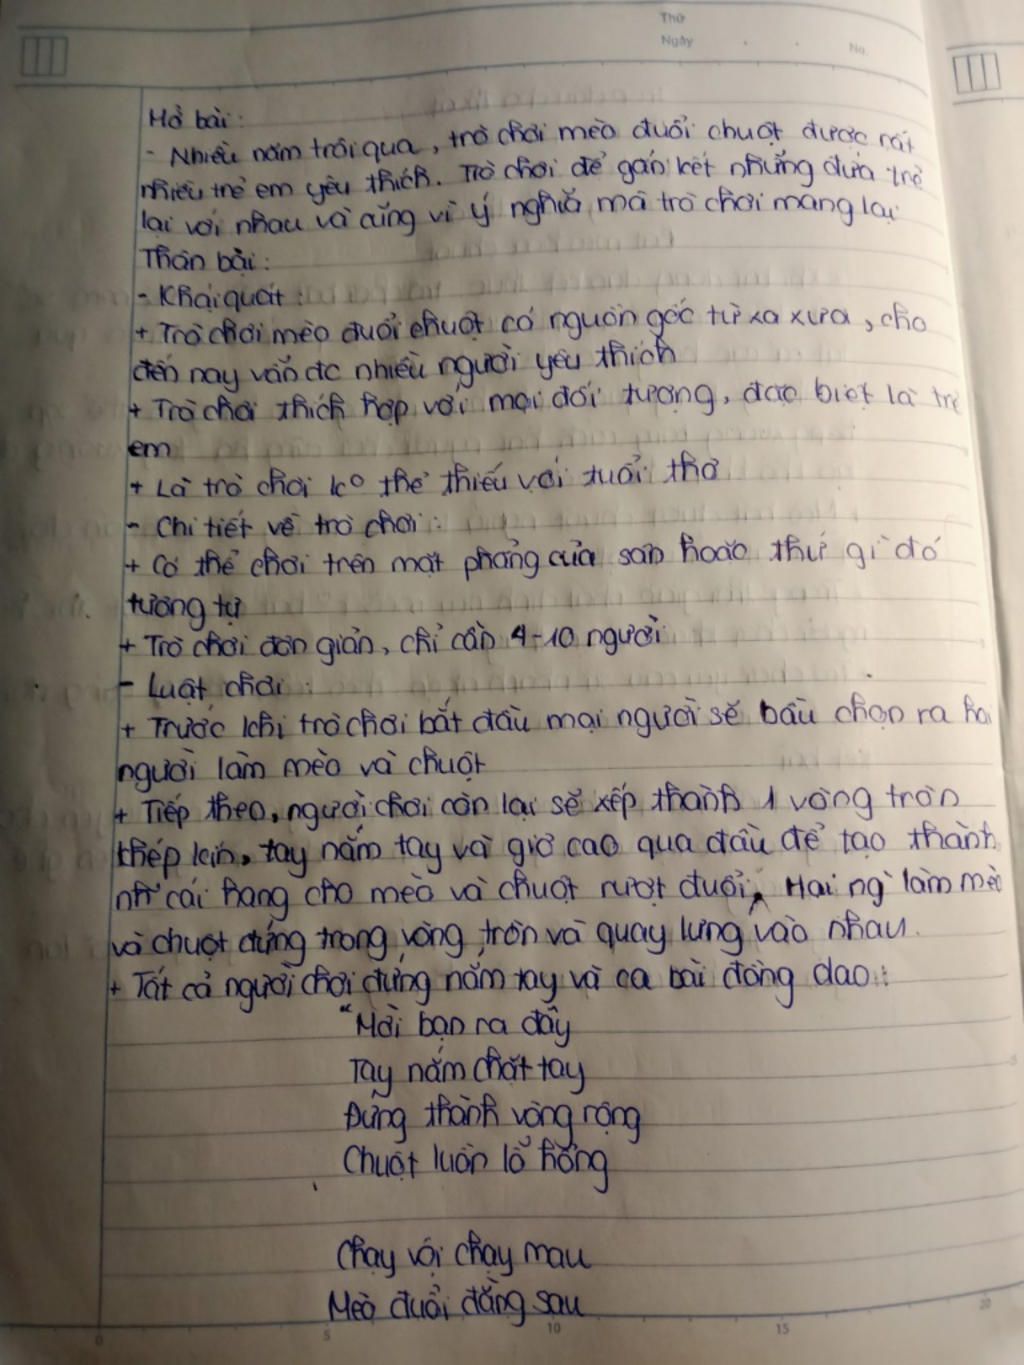 Thứ
Ngày
No.
Mở bài:
- Nhiều năm trôi qua, trò chơi mèo đuổi chuột được rất
nhiều trẻ em yêu thích. Trò chơi để gắn kết những đứa trẻ
lại với nhau và cũng vì ý nghĩa mà trò chơi mang lại
Thân bài:
- Khái quát:
+ Trò chơi mèo đuổi chuột có nguồn gốc từ xa xưa, cho
đến nay vẫn đc nhiều người yêu thích
+ Trò chơi thích hợp với mọi đối tượng, đặc biệt là trẻ
em
+ Là trò chơi kº thể thiếu với tuổi thơ
- Chi tiết về trò chơi:
+ Có thể chơi trên mặt phẳng của sân hoặc thứ gì đó
tương tự
+ Trò chơi đơn giản, chỉ cần 4-10 người
- Luật chơi:
+ Trước khi trò chơi bắt đầu mọi người sẽ bầu chọn ra hai
người làm mèo và chuột
+ Tiếp theo, người chơi còn lại sẽ xếp thành 1 vòng tròn
khép kín, tay nắm tay và giơ cao qua đầu để tạo thành
như cái hang cho mèo và chuột rượt đuổi, Hai ng` làm mèo
và chuột đứng trong vòng tròn và quay lưng vào nhau.
+ Tất cả người chơi đứng nắm tay và ca bài đồng dao:
"Mời bạn ra đây
Tay nắm chặt tay
Đứng thành vòng rộng
Chuột luồn lỗ hổng
Chạy vội chạy mau
Mèo đuổi đằng sau
0
5
10
15
20